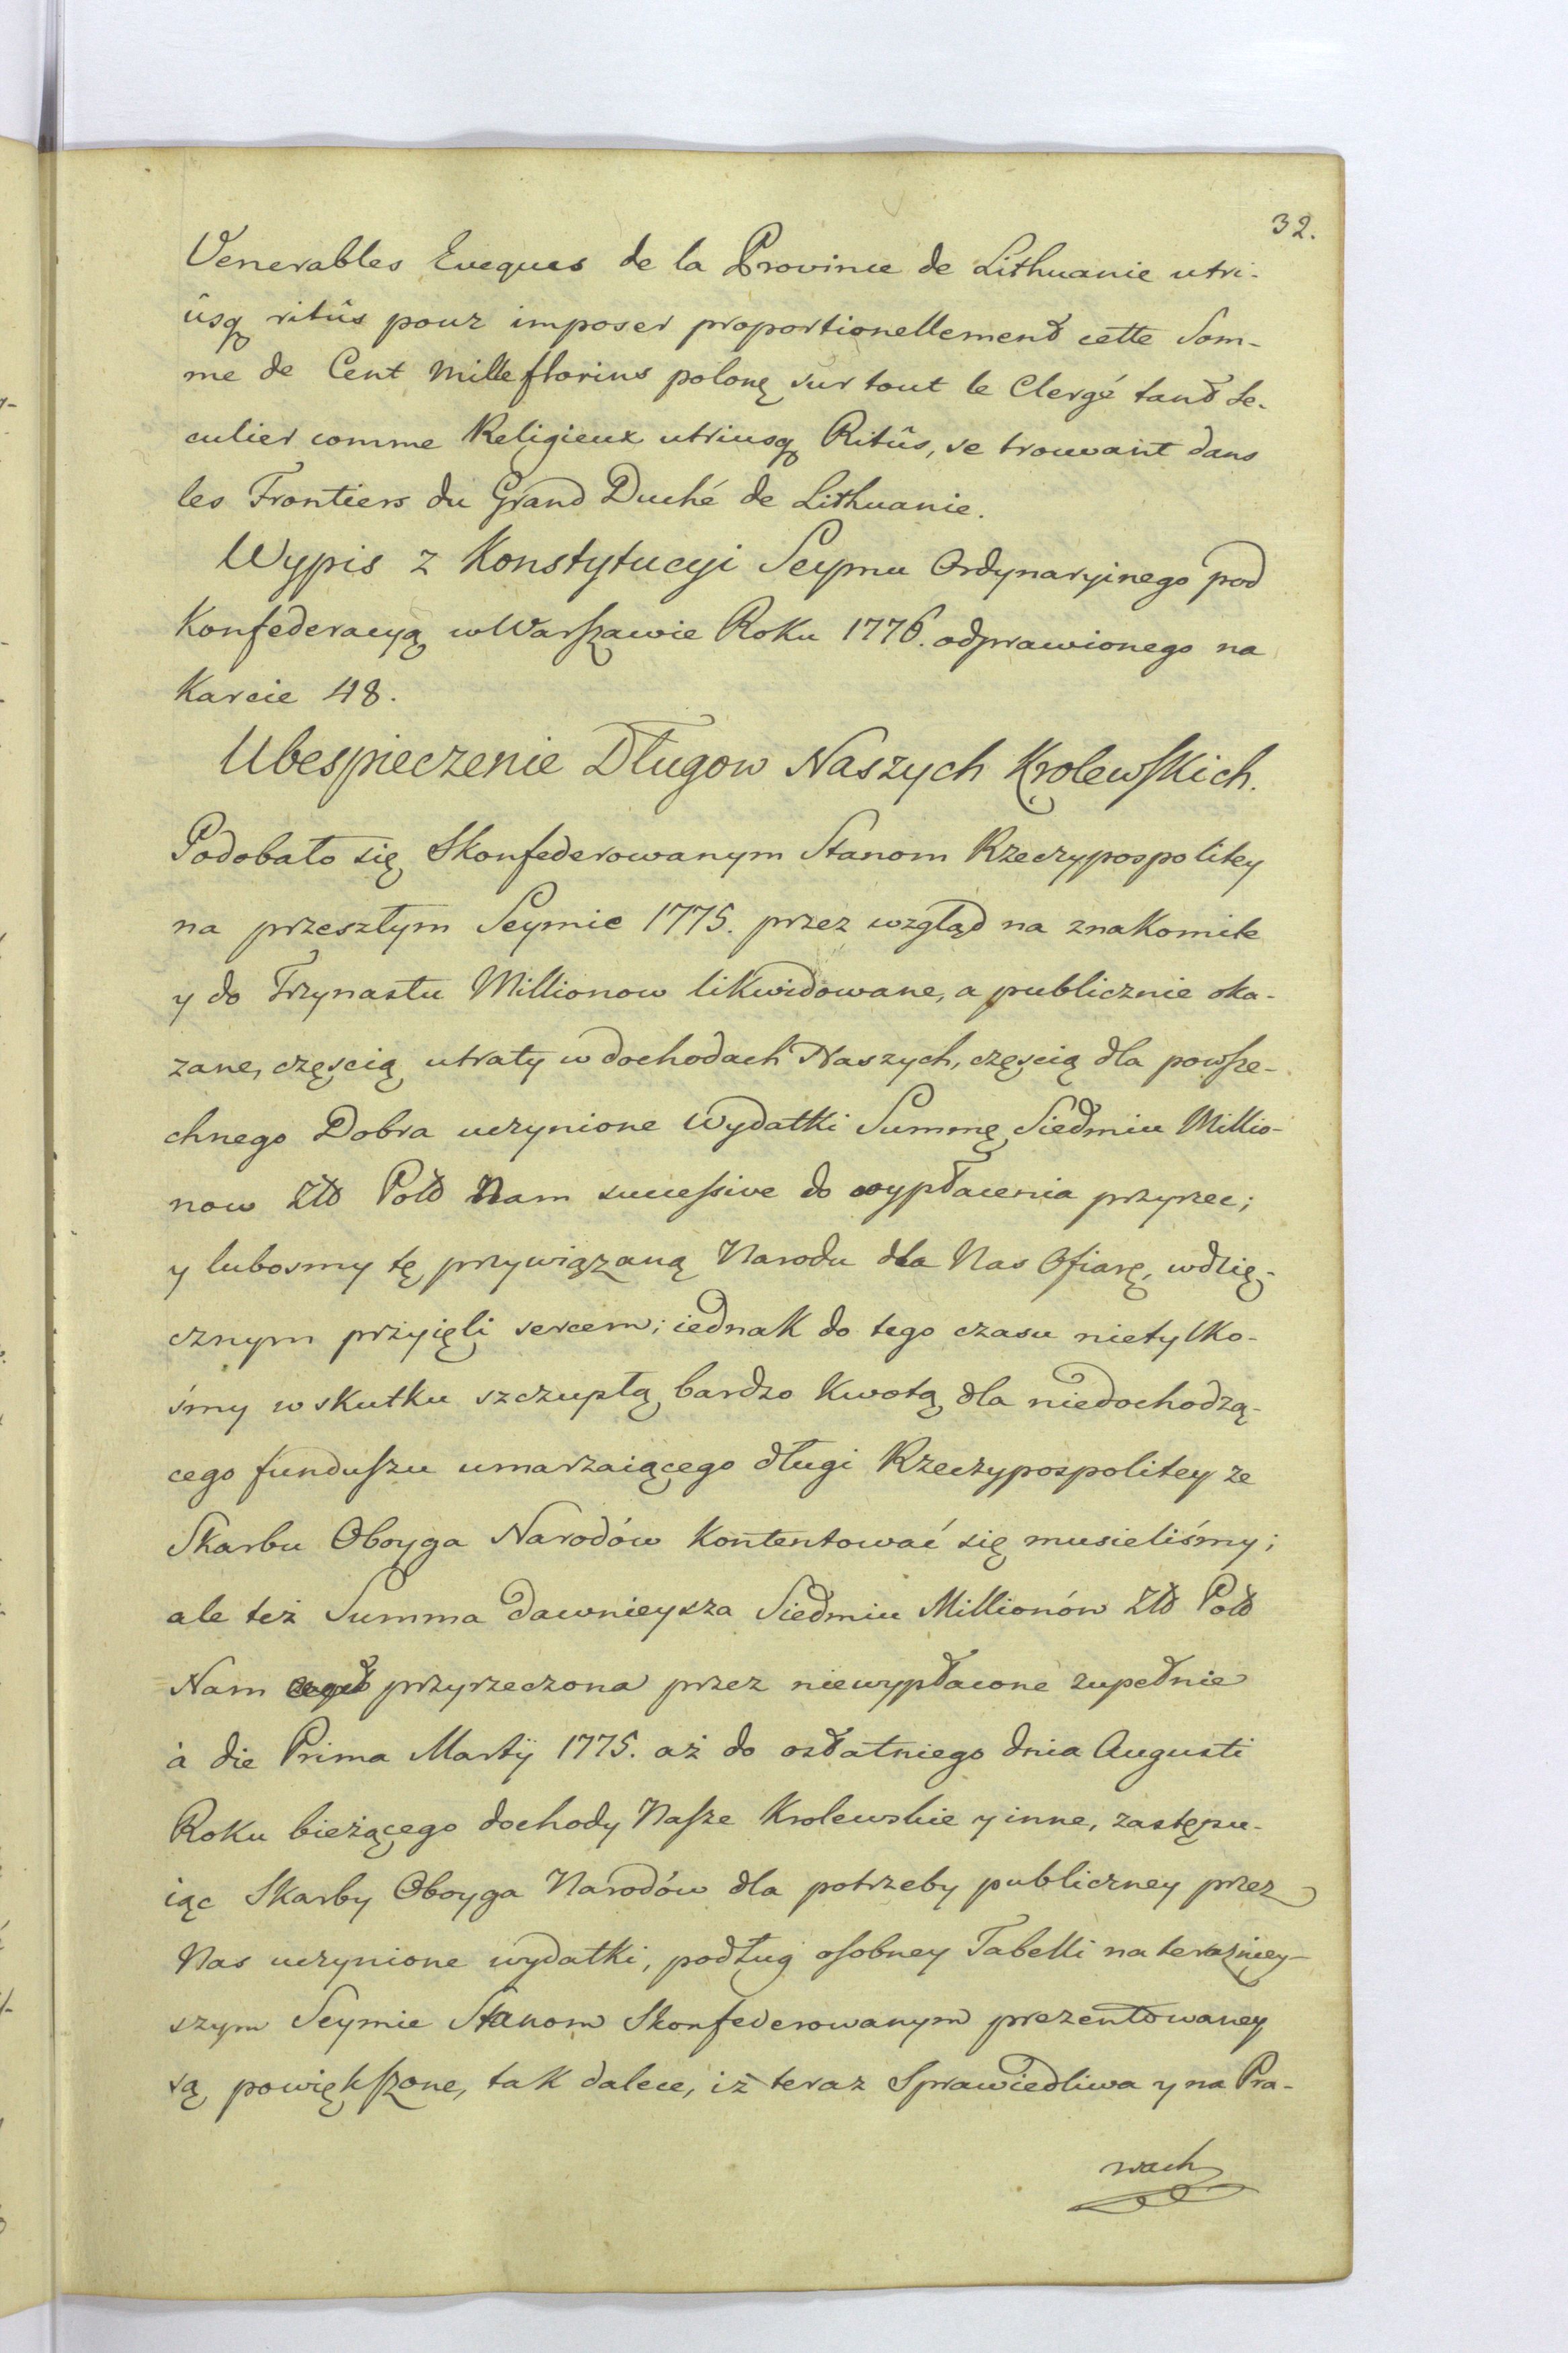 32.
Venerables Eveques de la Province de Lithuanie utri-
ûsq ritûs pour imposer proportionellement cette Som-
me de Cent Mille florins polonę sur tout le Clergé tant Se-
culier comme Religieux utriusq Ritûs, se trouvant dans
les Frontiers du Grand Duché de Lithuanie.
Wypis z Konstytucyi Seymu Ordynaryinego pod
Konfederacyą w Warszawie Roku 1776. odprawionego na
Karcie 48.
Ubespieczenie Długow Naszych Krolewskich.
Podobało się Skonfederowanym Stanom Rzeczypospolitey
na przeszłym Seymie 1775. przez wzgląd na znakomite
y do Trzynastu Millionow likwidowane, a publicznie oka-
zane, częścią utraty w dochodach Naszych, częścią dla powsze-
chnego Dobra uczynione wydatki Summę Siedmiu Millio-
now Złt Polt Nam successive do wypłacenia przyrzec;
y lubosmy tę przywiązaną Narodu dla Nas Ofiarę, wdzię-
cznym przyięli sercem; iednak do tego czasu nietylko-
śmy w skutku szczupłą bardzo Kwotą dla niedochodzą-
cego funduszu umarzaiącego długi Rzeczypospolitey ze
Skarbu Oboyga Narodów Kontentować się musieliśmy;
ale też Summa dawnieysza Siedmiu Millionów Złt Polt
Nam przyrzeczona przez niewypłacone zupełnie
à die Prima Martij 1775. aż do ostatniego dnia Augusti
Roku bieżącego dochody Nasze Krolewskie y inne, zastępu-
iąc Skarby Oboyga Narodów dla potrzeby publiczney przez
Nas uczynione wydatki, podług osobney Tabelli na terazniey-
szym Seymie Stanom Skonfederowanym prezentowaney
są powiększone, tak dalece, iż teraz Sprawiedliwa y na Pra-
wach